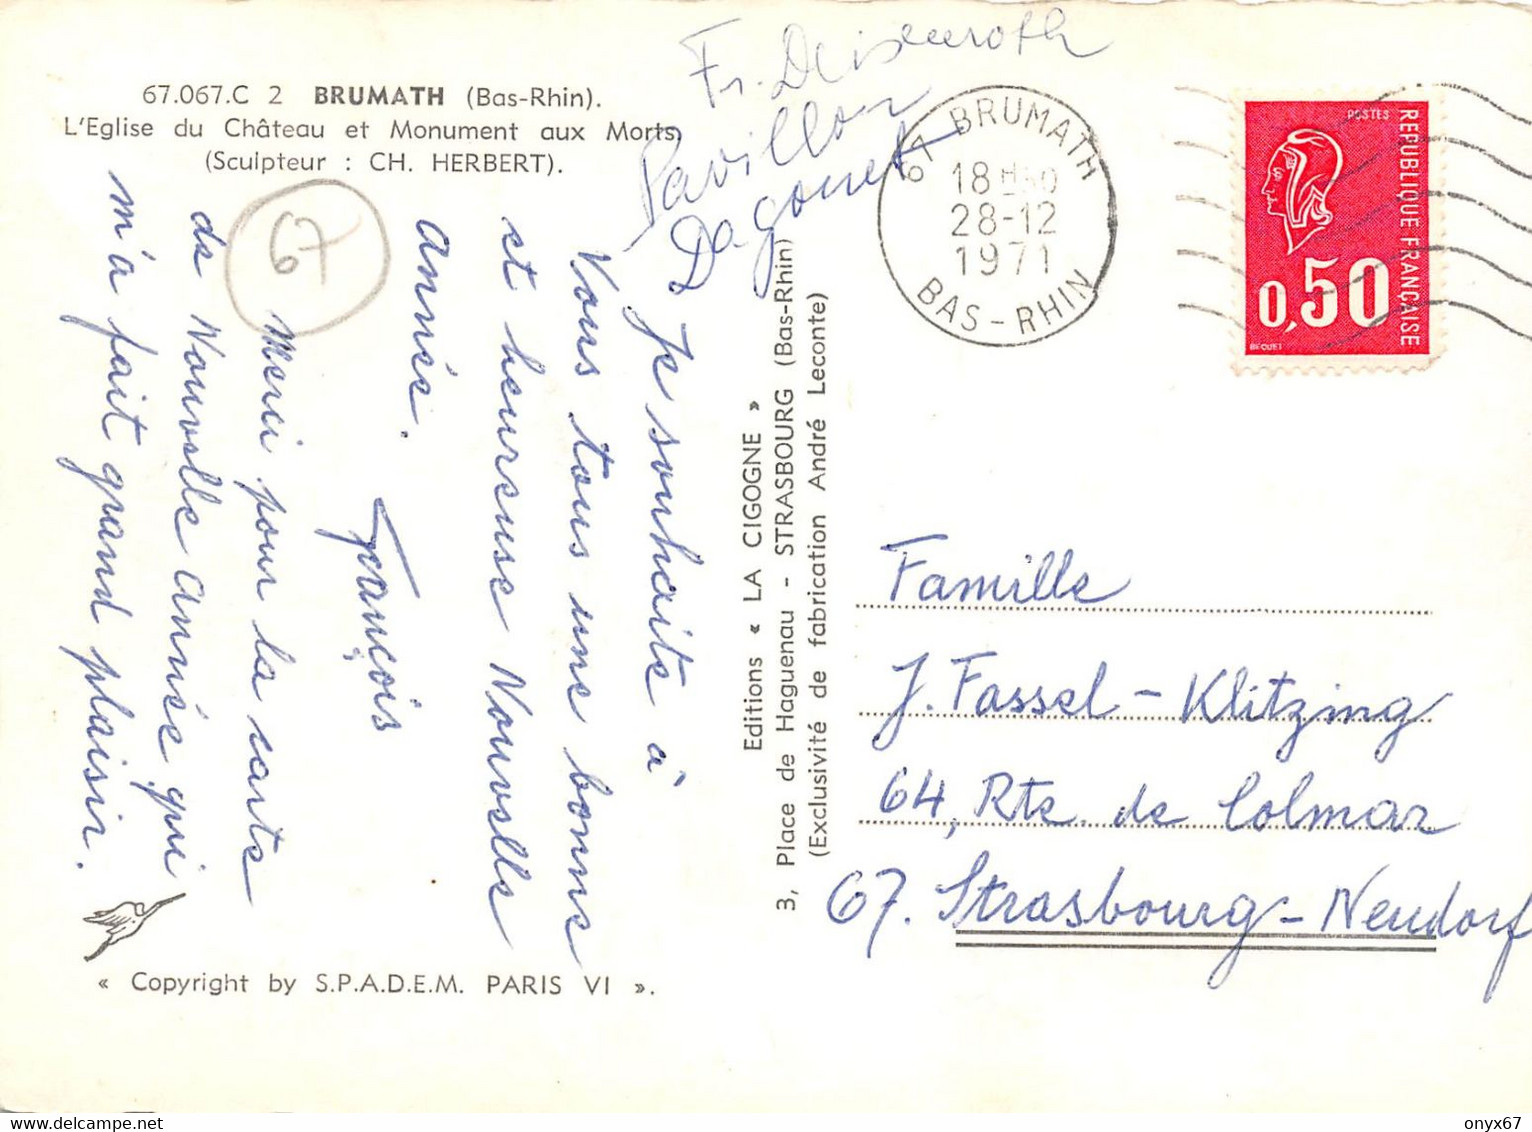 67.067.C 2 BRUMATH (Bas-Rhin).
L'Eglise du Château et Monument aux Morts,
(Sculpteur : CH. HERBERT).
Fr. Deisenroth
Pavillon
Dagonet
67
Je souhaite à
Vous tous une bonne
et heureuse Nouvelle
année.
François
Merci pour la carte
de Nouvelle année qui
m'a fait grand plaisir.
« Copyright by S.P.A.D.E.M. PARIS VI ».
Editions « LA CIGOGNE »
3, Place de Haguenau - STRASBOURG (Bas-Rhin)
(Exclusivité de fabrication André Leconte)
67 BRUMATH
18 H
28-12
1971
BAS-RHIN
POSTES
REPUBLIQUE FRANÇAISE
0,50
BEQUET
Famille
J. Fassel - Klitzing
64, Rte. de Colmar
67. Strasbourg - Neudorf
onyx67